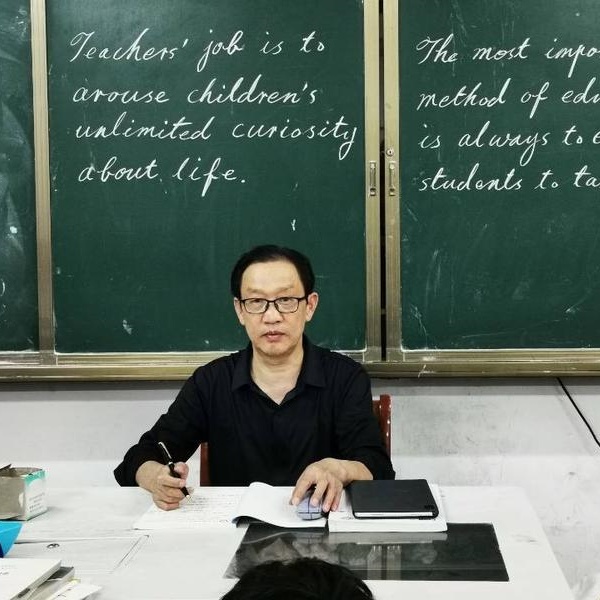 Teachers' job is to
arouse children's
unlimited curiosity
about life.
The most
method of
is always to
students to